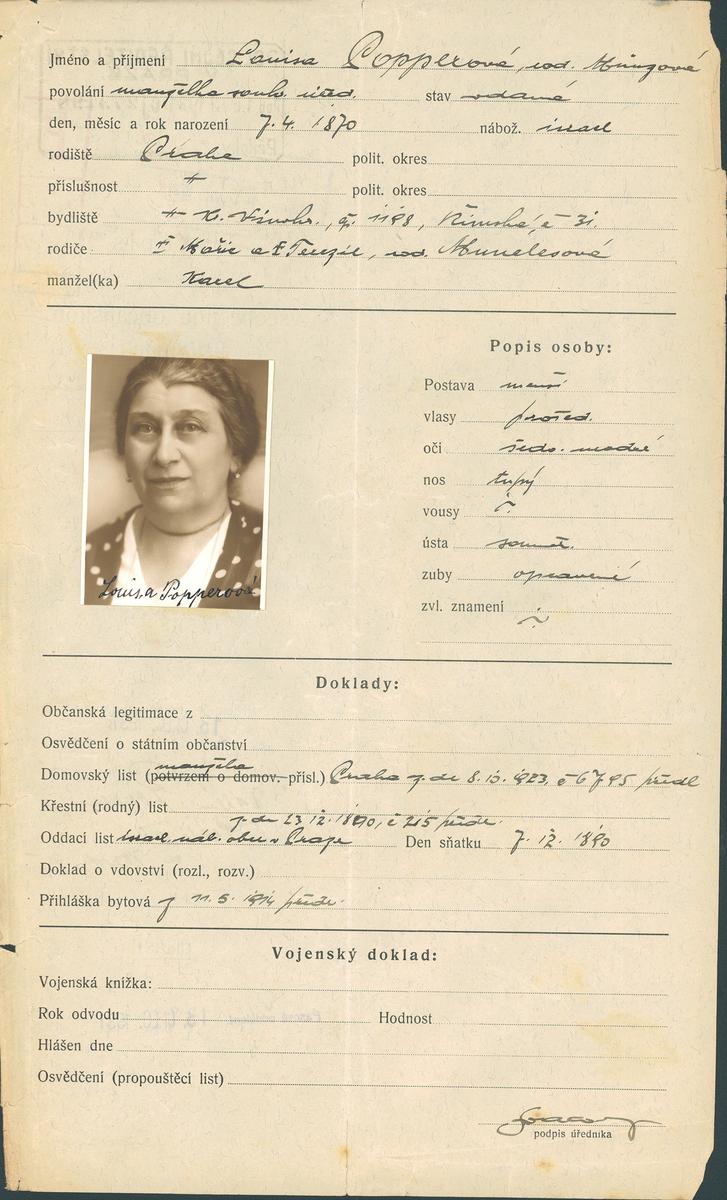 Jméno a příjmení Louisa Popperová, roz. Münzová
povolání manželka soukr. úřed. stav vdaná
den, měsíc a rok narození 7. 4. 1870 nábož. israel
rodiště Praha polit. okres
příslušnost polit. okres
bydliště K. Vinohr., čp. 1198, Římská, č 31.
rodiče a Terezie, roz. Munelesová
manžel(ka) Karel
Popis osoby:
Postava menší
vlasy prošed.
oči šedo. modré
nos tupý
vousy
ústa souměr.
zuby opravené
zvl. znamení
Louisa Popperová
Doklady:
Občanská legitimace z
Osvědčení o státním občanství
manžela
Domovský list (potvrzení o domov. přísl.) Praha z. de 8. 10. 1923, č 6795 předl
Křestní (rodný) list
z. de 23. 12. 1890, č 215 předl.
Oddací list israel. náb. obce v Praze Den sňatku 7. 12. 1890
Doklad o vdovství (rozl., rozv.)
Přihláška bytová z 11. 5. 1914 předl.
Vojenský doklad:
Vojenská knížka:
Rok odvodu Hodnost
Hlášen dne
Osvědčení (propouštěcí list)
podpis úředníka